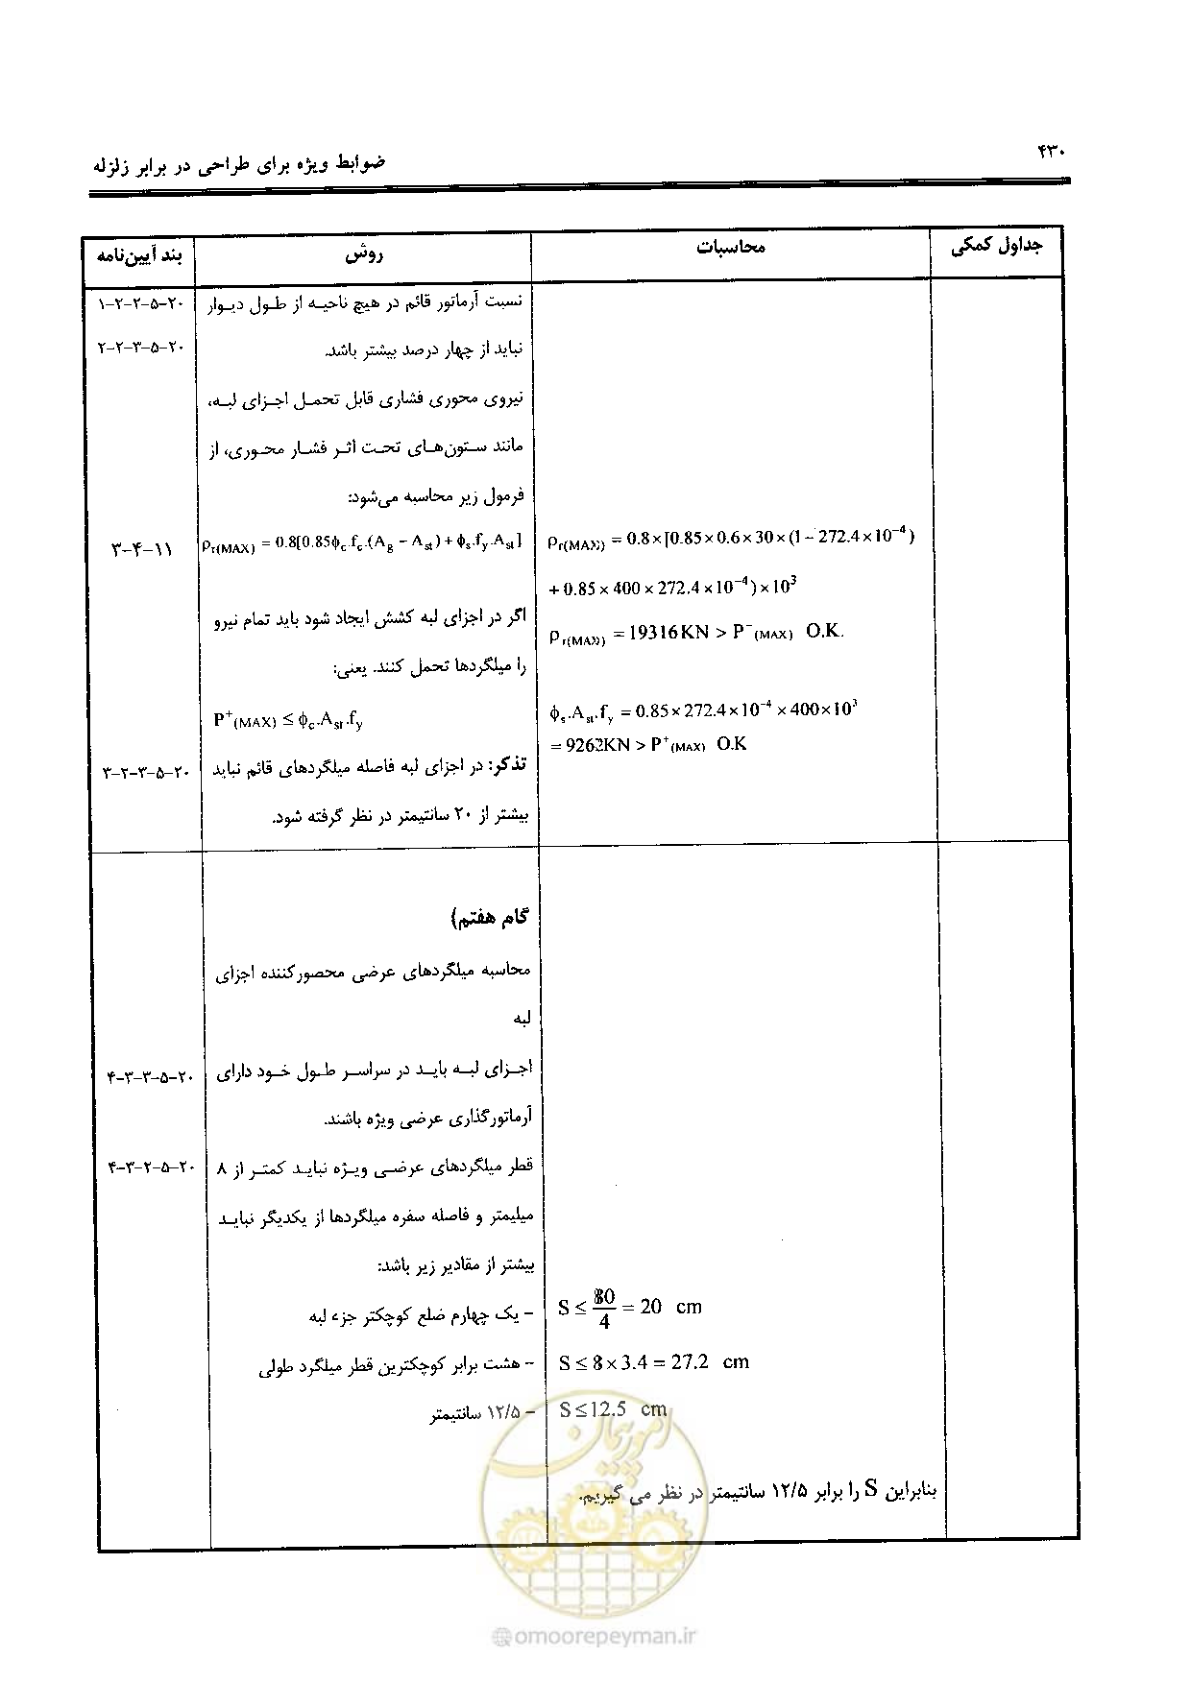 ۴۳۰
ضوابط ویژه برای طراحی در برابر زلزله
جداول کمکی
محاسبات
روش
بند آیین‌نامه
نسبت آرماتور قائم در هیچ ناحیه از طول دیوار
۲۰-۵-۲-۲-۱
نباید از چهار درصد بیشتر باشد.
۲۰-۵-۳-۲-۲
نیروی محوری فشاری قابل تحمل اجزای لبه،
مانند ستون‌های تحت اثر فشار محوری، از
فرمول زیر محاسبه می‌شود:
ρr(MAX) = 0.8[0.85ϕc.fc.(Ag − Ast) + ϕs.fy.Ast]
۱۱-۴-۳
ρr(MAX) = 0.8×[0.85×0.6×30×(1−272.4×10⁻⁴)
+0.85×400×272.4×10⁻⁴)×10³
ρr(MAX) = 19316KN > P⁻(MAX) O.K.
اگر در اجزای لبه کشش ایجاد شود باید تمام نیرو
را میلگردها تحمل کنند. یعنی:
P⁺(MAX) ≤ ϕc.Ast.fy
ϕs.Ast.fy = 0.85×272.4×10⁻⁴×400×10³
= 9262KN > P⁺(MAX) O.K
تذکر: در اجزای لبه فاصله میلگردهای قائم نباید
۲۰-۵-۳-۲-۳
بیشتر از ۲۰ سانتیمتر در نظر گرفته شود.
گام هفتم)
محاسبه میلگردهای عرضی محصورکننده اجزای
لبه
اجزای لبه باید در سراسر طول خود دارای
۲۰-۵-۳-۳-۴
آرماتورگذاری عرضی ویژه باشند.
قطر میلگردهای عرضی ویژه نباید کمتر از ۸
۲۰-۵-۲-۳-۴
میلیمتر و فاصله سفره میلگردها از یکدیگر نباید
بیشتر از مقادیر زیر باشد:
- یک چهارم ضلع کوچکتر جزء لبه
S ≤ 80/4 = 20 cm
- هشت برابر کوچکترین قطر میلگرد طولی
S ≤ 8×3.4 = 27.2 cm
- ۱۲/۵ سانتیمتر
S ≤ 12.5 cm
بنابراین S را برابر ۱۲/۵ سانتیمتر در نظر می گیریم.
امور پیمان
@omoorepeyman.ir